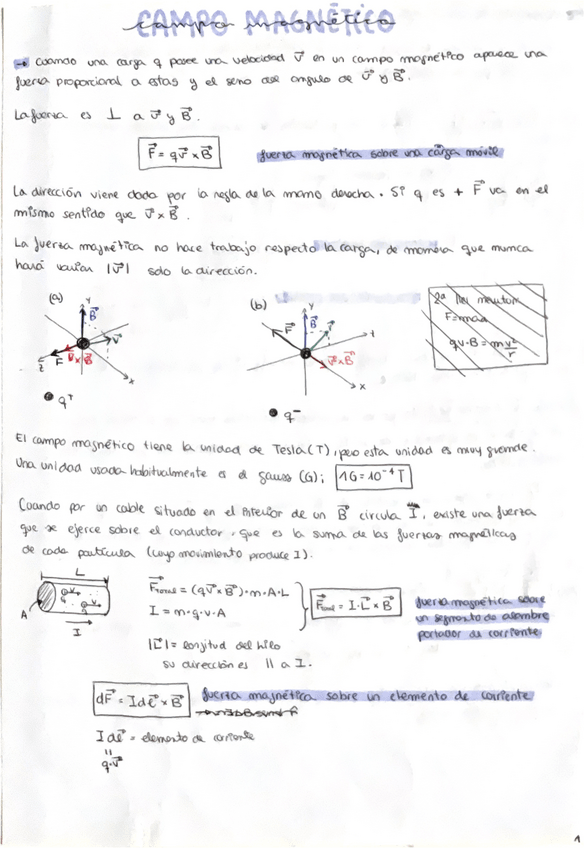 CAMPO MAGNÉTICO
campo magnético
→ Cuando una carga q posee una velocidad v⃗ en un campo magnético aparece una
fuerza proporcional a estas y el seno del angulo de v⃗ y B⃗.
La fuerza es ⊥ a v⃗ y B⃗.
F⃗ = q v⃗ × B⃗
fuerza magnética sobre una carga móvil
La dirección viene dada por la regla de la mano derecha. Si q es + F⃗ va en el
mismo sentido que v⃗ × B⃗.
La fuerza magnética no hace trabajo respecto la carga, de manera que nunca
hará variar |v⃗| solo la dirección.
(a)
Y
B⃗
v⃗
F⃗
v⃗ × B⃗
z
x
q⁺
(b)
Y
F⃗
B⃗
v⃗
v⃗ × B⃗
x
q⁻
2ª ley newton
F=m·a
qv·B = m v²/r
El campo magnético tiene la unidad de Tesla (T), pero esta unidad es muy grande.
Una unidad usada habitualmente es el gauss (G); 1G = 10⁻⁴ T
Cuando por un cable situado en el interior de un B⃗ circula I, existe una fuerza
que se ejerce sobre el conductor, que es la suma de las fuerzas magnéticas
de cada partícula (cuyo movimiento produce I).
L
A
q v
q v
I
F⃗total = (q v⃗ × B⃗)·n·A·L
I = n·q·v·A
F⃗total = I·L⃗ × B⃗
fuerza magnética sobre
un segmento de alambre
portador de corriente
|L⃗| = longitud del hilo
su dirección es || a I.
dF⃗ = I dℓ⃗ × B⃗
fuerza magnética sobre un elemento de corriente
I dℓ⃗ = elemento de corriente
=
q·v⃗
1